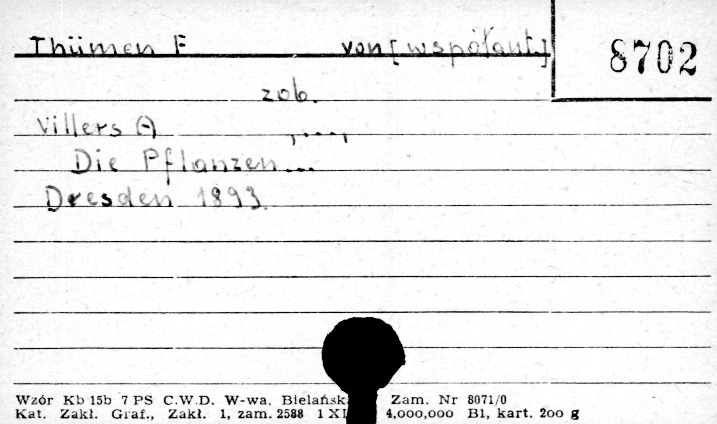 Thümen F von [współaut.] 8702
zob.
Villers (-) , ... ,
Die Pflanzen...
Dresden 1893.
Wzór Kb 15b 7 PS C.W.D. W-wa, Bielańsk Zam. Nr 8071/0
Kat. Zakł. Graf., Zakł. 1, zam. 2588 1 XI 4,000,000 B1, kart. 200 g